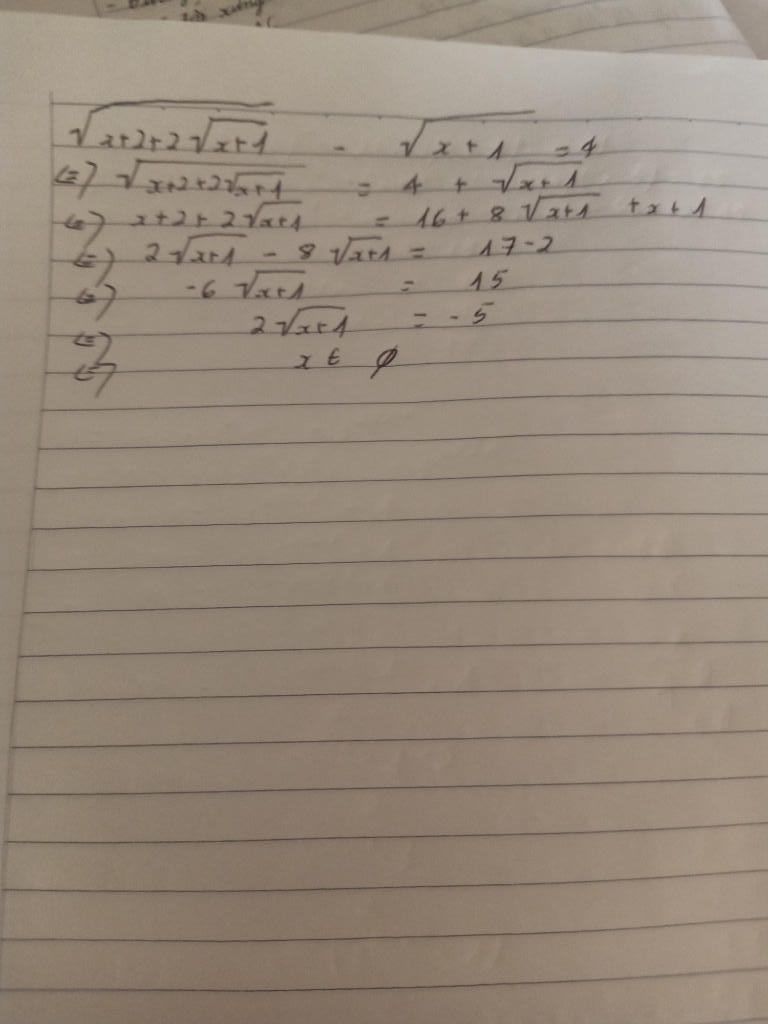 xứng
√(x+2+2√(x+1)) - √(x+1) = 4
<=> √(x+2+2√(x+1)) = 4 + √(x+1)
<=> x+2+2√(x+1) = 16 + 8√(x+1) + x + 1
<=> 2√(x+1) - 8√(x+1) = 17-2
<=> -6√(x+1) = 15
<=> 2√(x+1) = -5
<=> x ∈ ∅